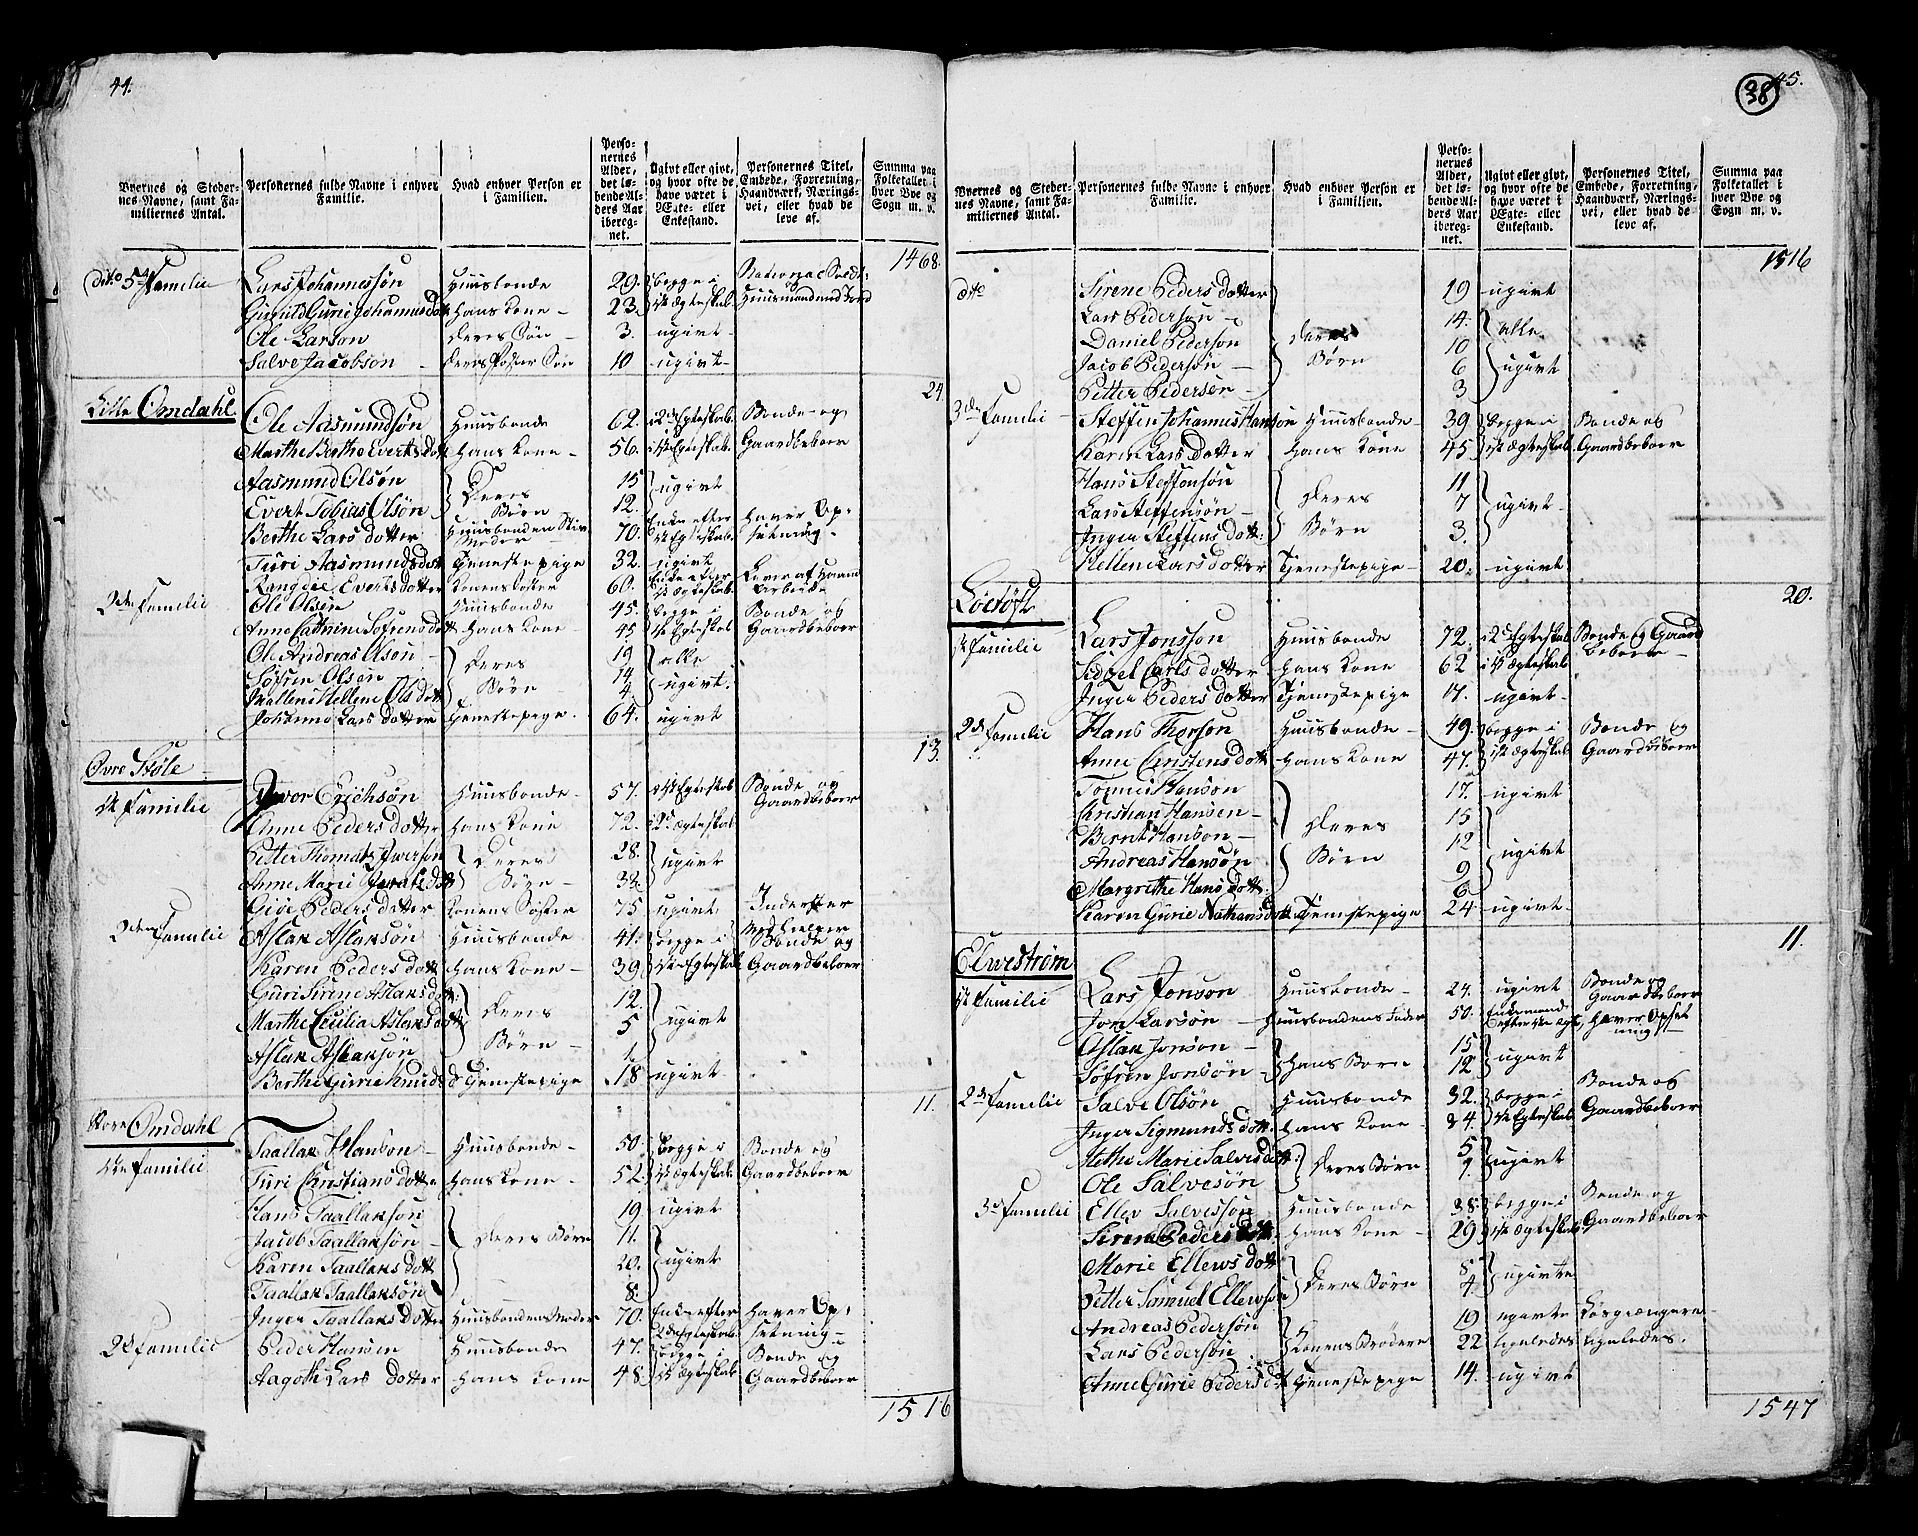 44.
Byernes og Steder- nes Navne, samt Fa- miliernes Antal.
Personernes fulde Navne i enhver Familie.
Hvad enhver Person er i Familien.
Perso- nernes Alder, det lø- bende Al- ders Aar iberegnet.
Ugivt eller givt, og hvor ofte de have været i Ægte- eller Enkestand.
Personernes Titel, Embede, Forretning, Haandværk, Nærings- vei, eller hvad de leve af.
Summa paa Folketallet i hver Bye og Sogn m. v.
1468.
dito 5te Familie Lars Johannessøn Huusbonde 29. begge i National Soldt:
Gunild Gurie Johannesdott hans Kone 23. 1ste Ægteskab Huusmand med Jord
Ole Larsøn deres Søn 3. ugivt
Salve Jacobsøn deres Foster Søn 10 ugivt
24.
Lille Omdahl Ole Aasmundsøn Huusbonde 62. i 2det Egteskab Bonde og
Marthe Berthe Evertsdott hans Kone 56. i 1ste Egteskab Gaardbeboer
Aasmund Olsøn Deres Børn 15 ugivt
Evert Tobias Olsøn 12.
Berthe Lars dotter Huusbondens Stiv Moder 70. Enke efter 1ste Egteskab haver Op: setning
Turi Aasmundsdott Tjenestepige 32. ugivt
Rangdie Evertsdotter Konens Søster 60. Enke efter 1ste Egteskab Lever af Haand Arbeide
2den Familie Ole Olsen Huusbonde 45. begge i Bonde og
Anne Cathrine Sofrensdott hans Kone 45 1ste Egteskab Gaardbeboer
Ole Andreas Olsøn Deres Børn 19 alle ugivt.
Søfren Olsøn 14
Mallene Hellene Olsdott 4.
Johanne Lars dotter Tjenestepige. 64. ugivt
13.
Øvre Støle
1ste Familie Iver Erichsøn Huusbonde 57. i 1ste Egteskab Bonde og
Anne Peders dotter hans Kone 72. i 2det Ægteskab Gaardbeboer
Petter Thomas Iversøn Deres Børn 28. ugivt
Anne Marie Iversdott 32.
Giøe Peders dotter Konens Søster 75 ugivt Inderster
2den Familie Aslak Aslaksøn Huusbonde 41. begge i Bonde og
Karen Peders dott hans Kone 39 1ste Egteskab Gaardbeboer
Guri Sirene Aslaksdott: Deres Børn 12. ugivt
Marthe Cecilia Aslaksdott 5
Aslak Aslaksøn 1
Berthe Gurie Knuds d Tjenestepige 18 ugivt
11.
Store Omdahl
1ste Familie Taallak Hansøn Huusbonde 50. begge i Bonde og
Turi Christians dotter hans Kone 52. 1ste Ægteskab Gaardbeboer
Hans Taallaksøn Deres Børn 19 ugivt
Jacob Taallaksøn 11. ugivt
Karen Taallaksdott 20.
Taallak Taallaksøn 8.
Inger Taallaks dotter Huusbondens Moder 70. Enke efter 2det Egteskab haver Op: setning
2de Familie Peder Hansen Huusbonde 47. begge i Bonde og
Aagothe Lars dotter hans Kone 48. 1ste Ægteskab Gaardbeboer
1516
38
45.
Byernes og Steder- nes Navne, samt Fa- miliernes Antal.
Personernes fulde Navne i enhver Familie.
Hvad enhver Person er i Familien.
Perso- nernes Alder, det lø- bende Al- ders Aar iberegnet.
Ugivt eller givt, og hvor ofte de have været i Ægte- eller Enkestand.
Personernes Titel, Embede, Forretning, Haandværk, Nærings- vei, eller hvad de leve af.
Summa paa Folketallet i hver Bye og Sogn m. v.
1516
dito Sirene Peders dotter deres Børn 19 ugivt
Lars Pedersøn 14. alle ugivt
Daniel Pedersøn 10
Jacob Pedersøn 6
Petter Pedersen 3
3die Familie Steffen Johannes Hansøn Huusbonde 39 begge i Bonde og
Karen Lars dotter hans Kone 45 1ste Ægteskab Gaardbeboer
Hans Steffensøn Deres Børn 11 ugivt
Lars Steffensøn 7
Inger Steffens dott: 3.
Hellene Larsdotter Tjenestepige 20. ugivt
20.
Loetøft
1ste Familie Lars Jonssøn Huusbonde 72. i 2det Egteskab Bonde og Gaard beboer
Sidzel Carls dotter hans Kone 62 i 1ste Ægteskab
Inger Peders dotter Tjenestepige 17. ugivt
2den Familie Hans Thorsøn Huusbonde 49. begge i Bonde og
Anne Cerstens dott hans Kone 47. 1ste Ægteskab Gaardbeboer
Tonnes Hansøn Deres Børn 17. ugivt
Christian Hansen 15 ugivt
Bernt Hansøn 12
Andreas Hansøn 9
Margrethe Hans dott: 6
Karen Gurie Nathansdott Tjenestepige 24 ugivt
11.
Elwestrøm
1ste Familie Lars Jonsøn Huusbonde 24. ugivt Bonde og Gaardbeboer
Jon Larsøn Huusbondens Fader 50. Enkemand efter 1ste Egt. haver Opset ning
Aslak Jonsøn hans Børn 15 ugivt
Søfren Jonsøn 12
2den Familie Salve Olsøn Huusbonde 32. begge i Bonde og
Inger Sigmunds dott. hans Kone 24. 1ste Egteskab Gaardbeboer
Marie Salvesdott: Deres Børn 5 ugivt
Ole Salvesøn 1
3die Familie Ellev Salvessøn Huusbonde 38. begge i Bonde og
Sirene Peders dott. hans Kone 29 1ste Ægteskab Gaardbeboer
Marie Ellews dott Deres Børn 8 ugivte
Petter Samuel Ellewsøn 4.
Andreas Pedersøn Konens Brødere 19 ugivte Løsgængere
Lars Pedersøn 22 ligeledes ligeledes.
Anne Gurie Peders d: Tjenestepige 14. ugivt
1547